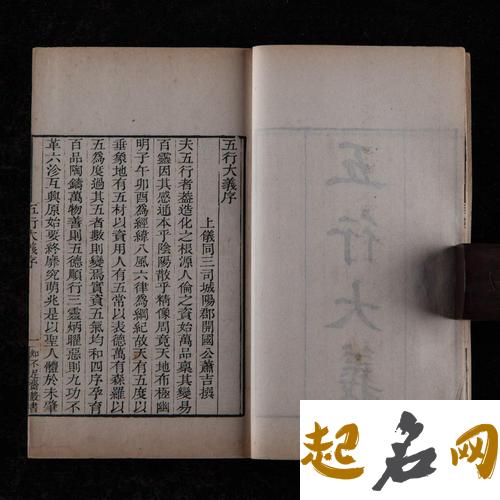 五行大義
五行大義序
上儀同三司城陽郡開國公蕭吉撰
夫五行者蓋造化之根源人倫之資始萬品禀其變易
百靈因其感通本乎陰陽散乎精像周竟天地布極幽
明子午卯酉為經緯八風六律為綱紀故天有五度以
垂象地有五材以資用人有五常以表德萬有森羅以
五為度過其五者數則變焉實資五氣均和四序孕育
百品陶鑄萬物善則五德順行三靈炳曜惡則九功不
革六沴互興原始要終靡究萌兆是以聖人體於未肇
五行大義序
一
知不足齋叢書
起名网